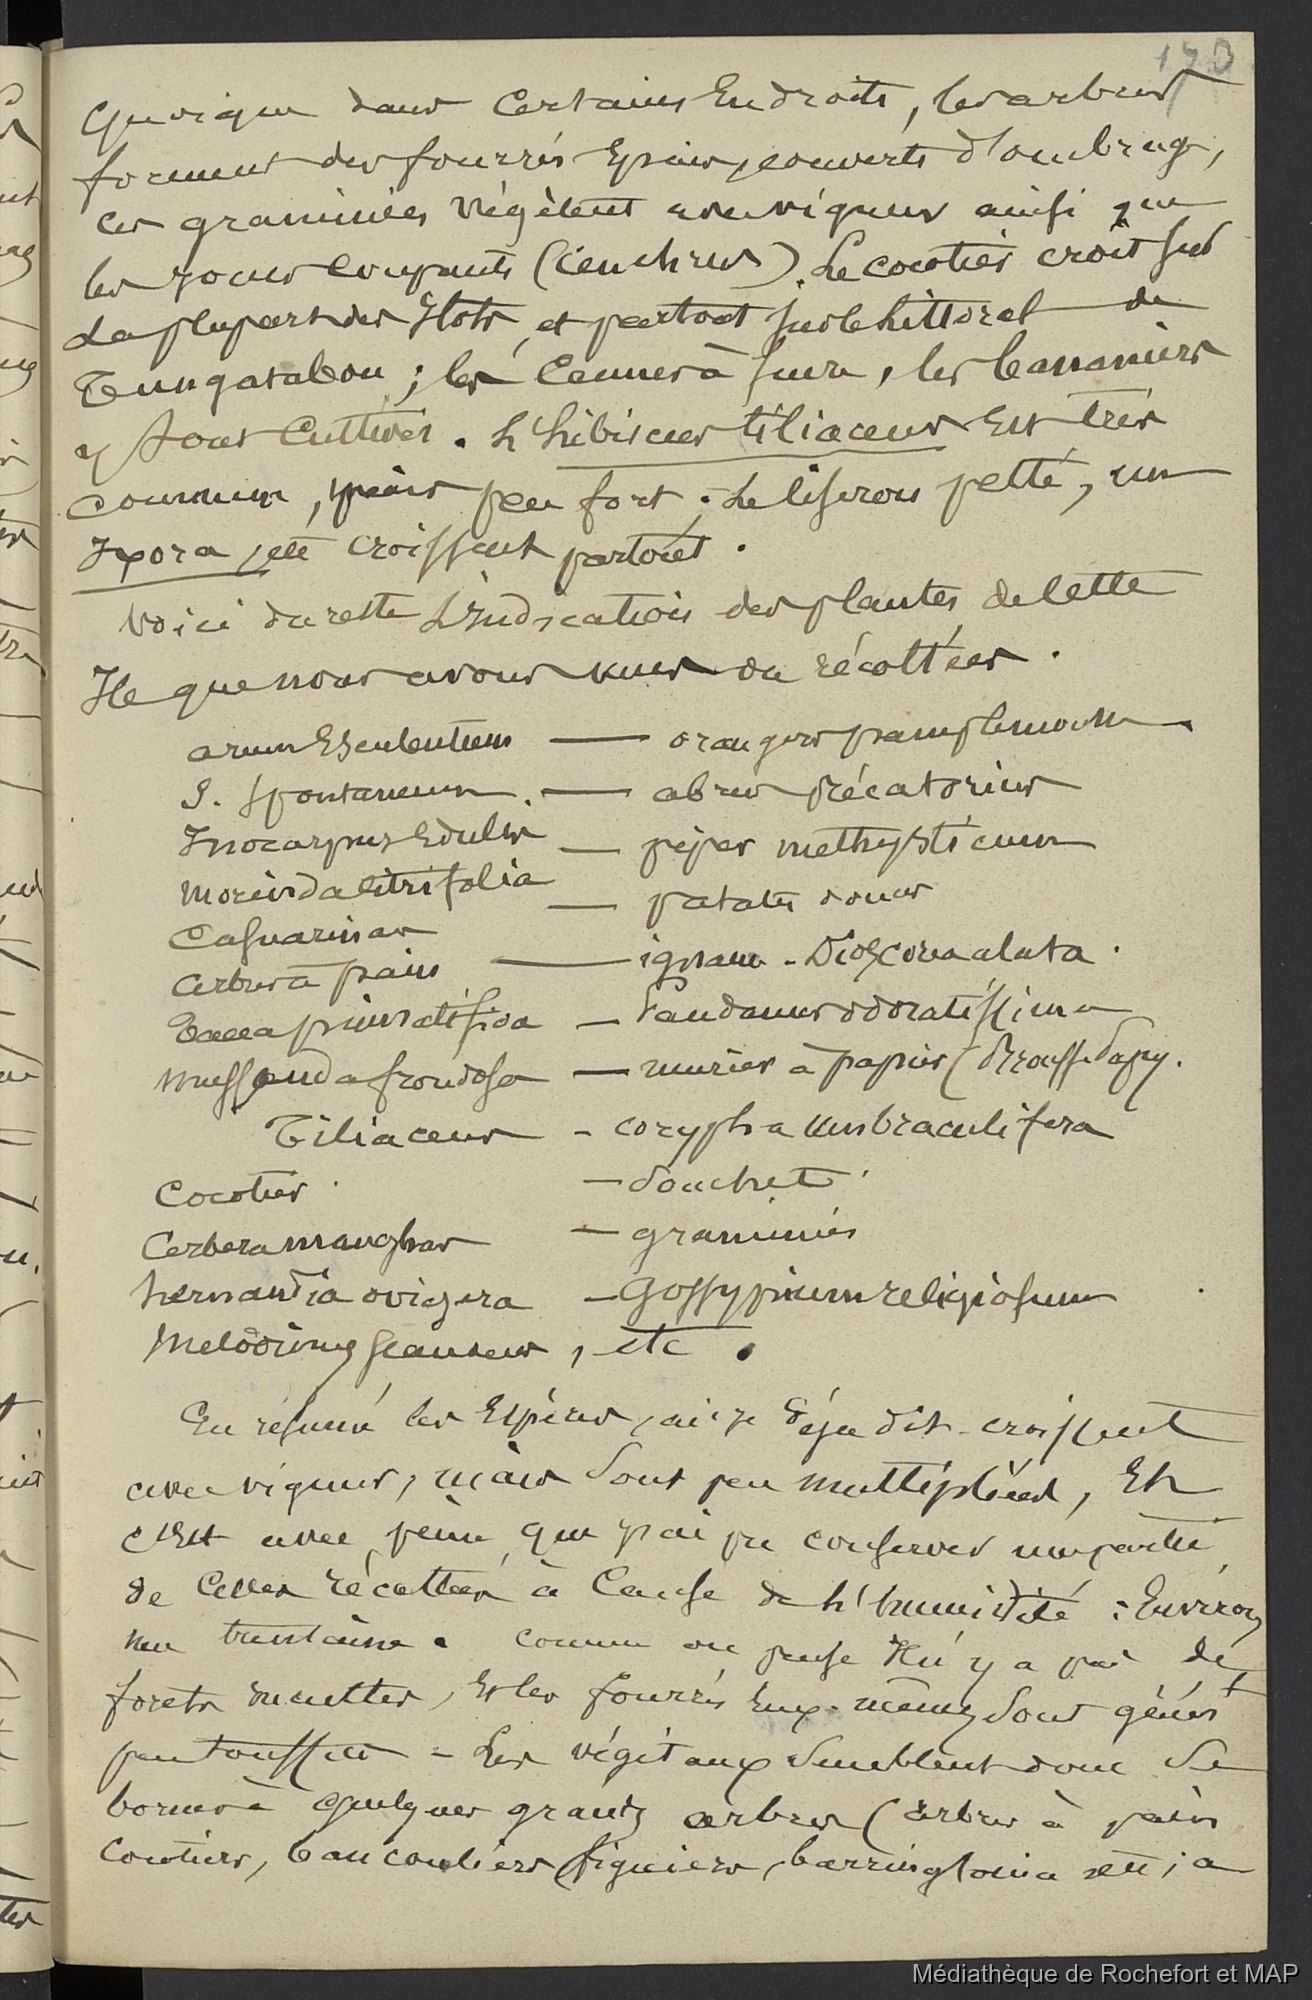 173
Quoique dans certains Endroits, les arbres
forment des fourrés Epais, couverts d'ombrage,
ces graminées végètent avec vigueur ainsi que
les joncs coupants (cenchrus). Le cocotier croit sur
La plupart des Ilots, et partout sur le littoral de
Tungatabou ; les Cannes à sucre, les bananiers
y sont Cultivés. L'hibiscus tiliaceus Est très
commun, mais peu fort ; Le liseron pelté, un
Ixora, etc croissent partout.
Voici du reste L'indication des plantes de Cette
Ile que nous avons vues ou récoltées.
arum Esculentum — orangers pamplemousse
S. spontaneum — abrus précatorius
Inocarpus Edulis — piper methysticum
Morinda Citrifolia — patates douces
Casuarinas
arbres à pain — igname - Dioscorea alata.
Tacca pinnatifida — Pandanus odoratissima
Mussaenda frondosa — murier à papier (Broussss. Papy.
Tiliaceus - corypha umbraculifera
Cocotier - Souchet
Cerbera manghas - graminées
hernandia ovigera - Gossypium religiosum
Melodinus scandens, etc.
En résumé les Espèces, ai-je déja dit - croissent
avec vigueur, mais Sont peu multipliées, Et
c'Est avec peine que j'ai pu conserver une partie
de Celles récoltées à Cause de L'humidité : Environ
une trentaine. comme on pense Il n'y a pas de
forets incultes, Et les fourrés Eux-mêmes Sont génért
peu touffus - Les végétaux Semblent donc Se
borner à quelques grands arbres (arbres à pain
cocotiers, bancouliers figuiers, barringtonia etc ; a
Médiathèque de Rochefort et MAP